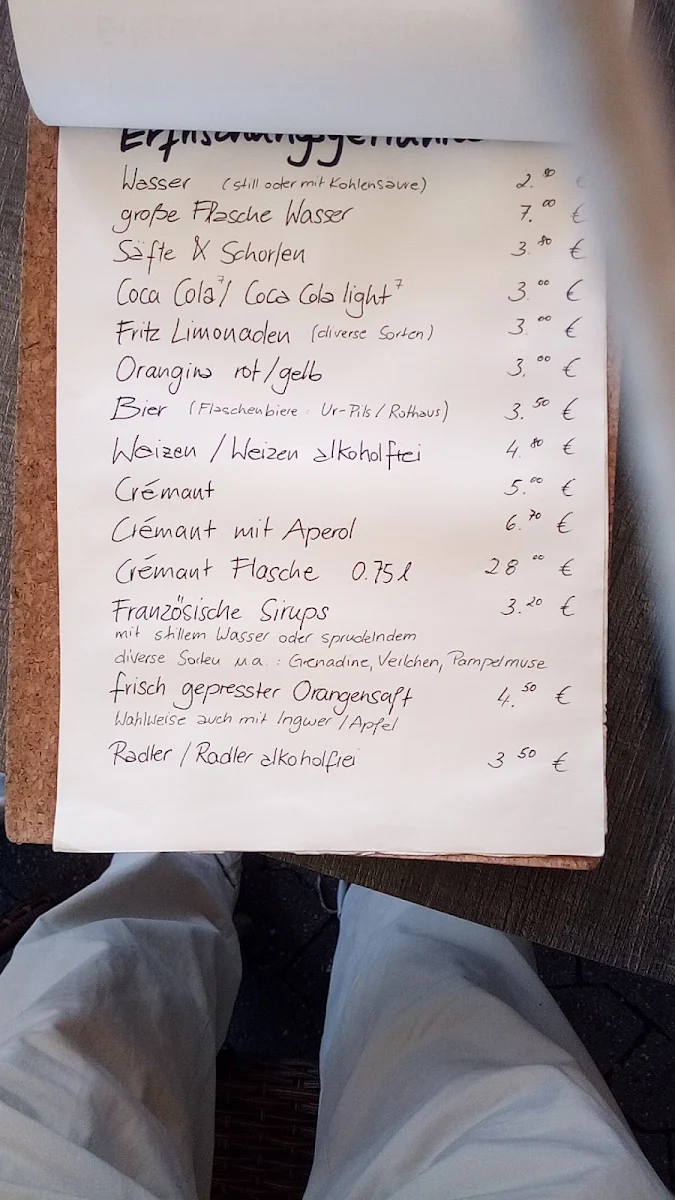 Erfrischungsgetränke
Wasser (still oder mit Kohlensäure) 2.80 €
große Flasche Wasser 7.00 €
Säfte & Schorlen 3.80 €
Coca Cola⁷/ Coca Cola light⁷ 3.00 €
Fritz Limonaden (diverse Sorten) 3.00 €
Orangina rot/gelb 3.00 €
Bier (Flaschenbiere: Ur-Pils/Rothaus) 3.50 €
Weizen / Weizen alkoholfrei 4.80 €
Crémant 5.00 €
Crémant mit Aperol 6.70 €
Crémant Flasche 0.75l 28 00 €
Französische Sirups 3.20 €
mit stillem Wasser oder sprudelndem
diverse Sorten u.a.: Grenadine, Veilchen, Pampelmuse
frisch gepresster Orangensaft 4.50 €
Wahlweise auch mit Ingwer/Apfel
Radler / Radler alkoholfrei 3 50 €